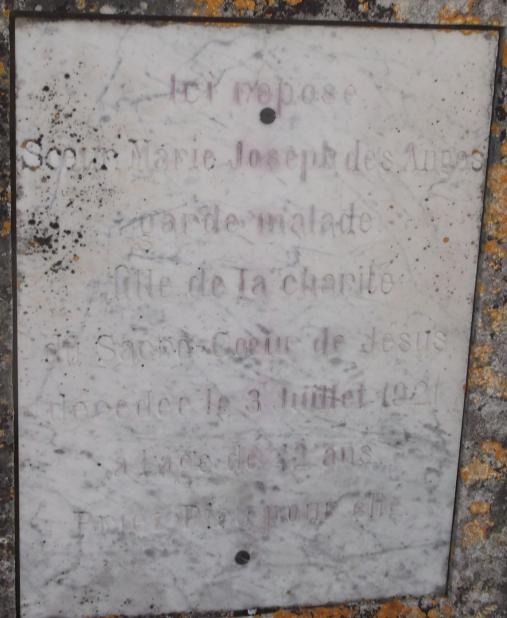 Ici repose
Sœur Marie Joseph des Anges
garde malade
fille de la charité
du Sacré-Cœur de Jésus
décédée le 3 Juillet 1921
à l'age de ans
Priez pour elle